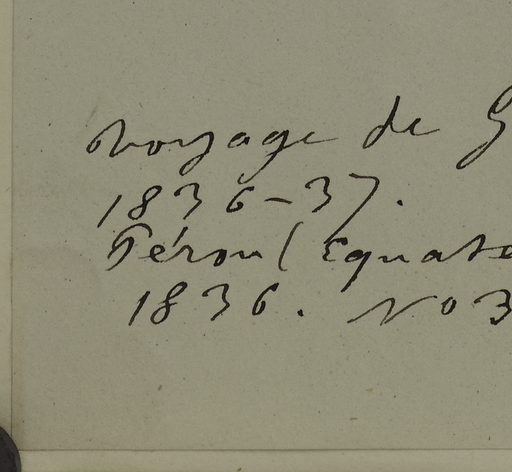 Voyage de G
1836-37.
Pérou (Equate
1836. No 3